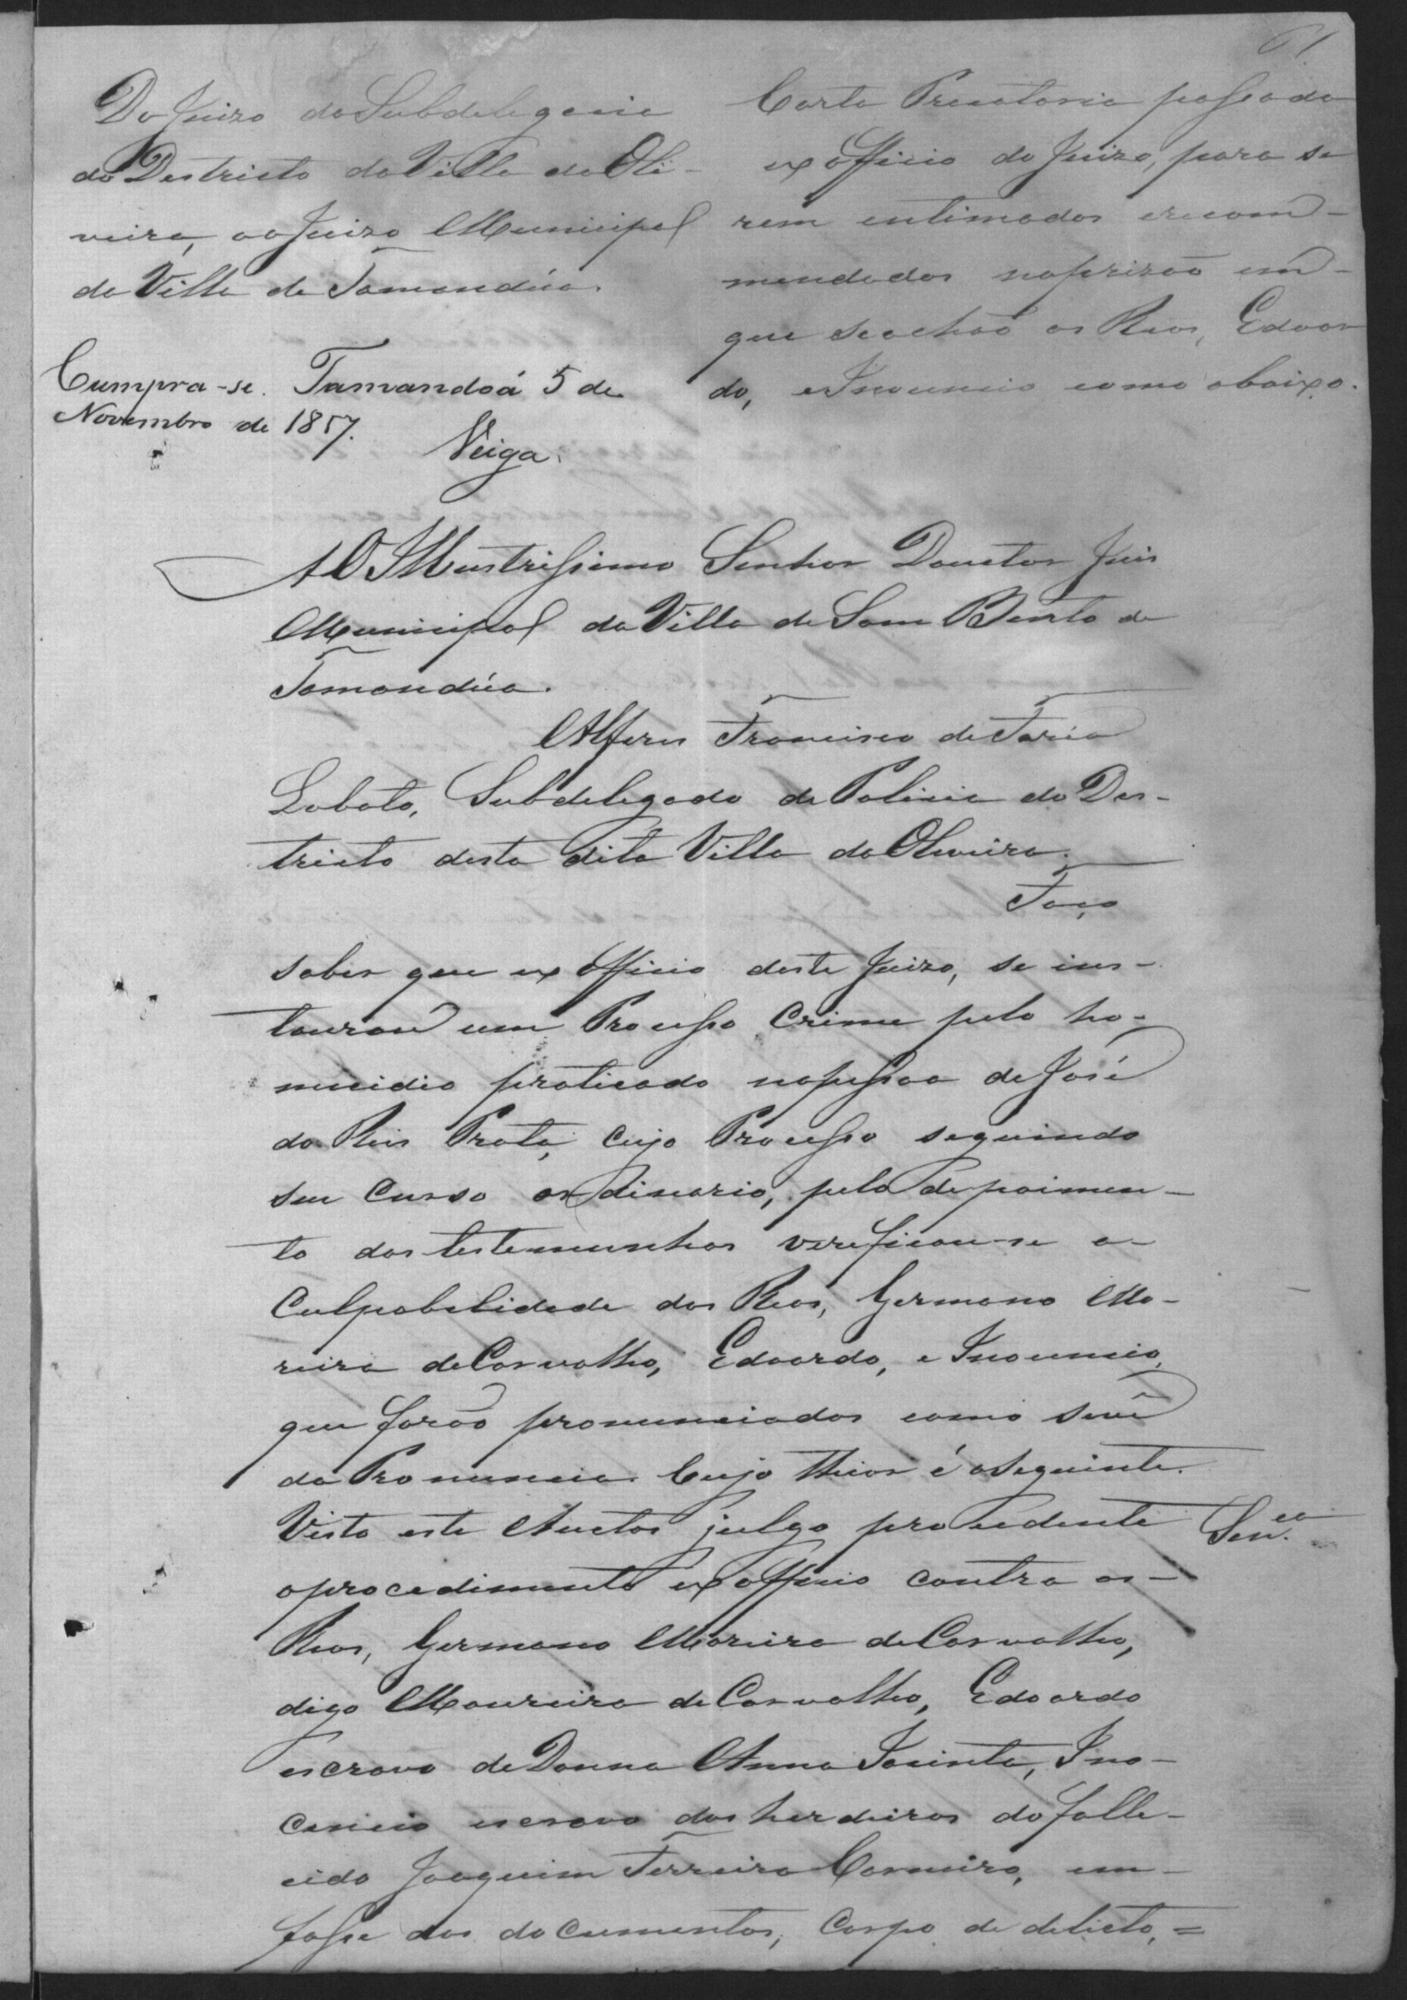 61
Do Juizo da Subdelegacia
do Destricto da Villa da Oli-
veira, ao Juizo Municipal
da Villa de Tamanduá.
Carta Precatoria passada
ex officio do Juizo, para se
rem intimados erecom-
mendados naprizão em
que seachão os Reos, Edoar
do, eInnocencio como abaixo.
Cumpra-se. Tamandoá 5 de
Novembro de 1857.
Veiga.
AO Illustrissimo Senhor Douctor Juis
Municipal da Villa de Sam Bento de
Tamandúa.
Alferes Francisco de Faria
Lobato, Subdelegado de Policia do Des-
tricto desta dita Villa da Oliveira.
Faço
saber que ex officio deste Juizo, se ins-
taurou um Processo Crime pelo ho-
micidio praticado napessoa de José
do Reis Prata, cujo Processo seguindo
seu curso ordinario, pelo depoimen-
to das testemunhas verificou-se a
Culpabelidade dos Reos, Germano Mo-
reira deCarvalho, Edoardo, e Inocencio,
que forão pronunciados como sevê
da Pronuncia. Cujo theor é oseguinte.
Visto este Auctos julgo procedente
Sen.ca
oprocedimento ex officio contra os
Reos, Germano Moreira deCarvalho,
digo Moureira deCarvalho, Edoardo
escravo de Donna Anna Jacinta, Ino-
cencio escravo dos herdeiros do falle-
cido Joaquim Ferreira Carneiro, em
fasse dos documentos, Corpo de delicto, =